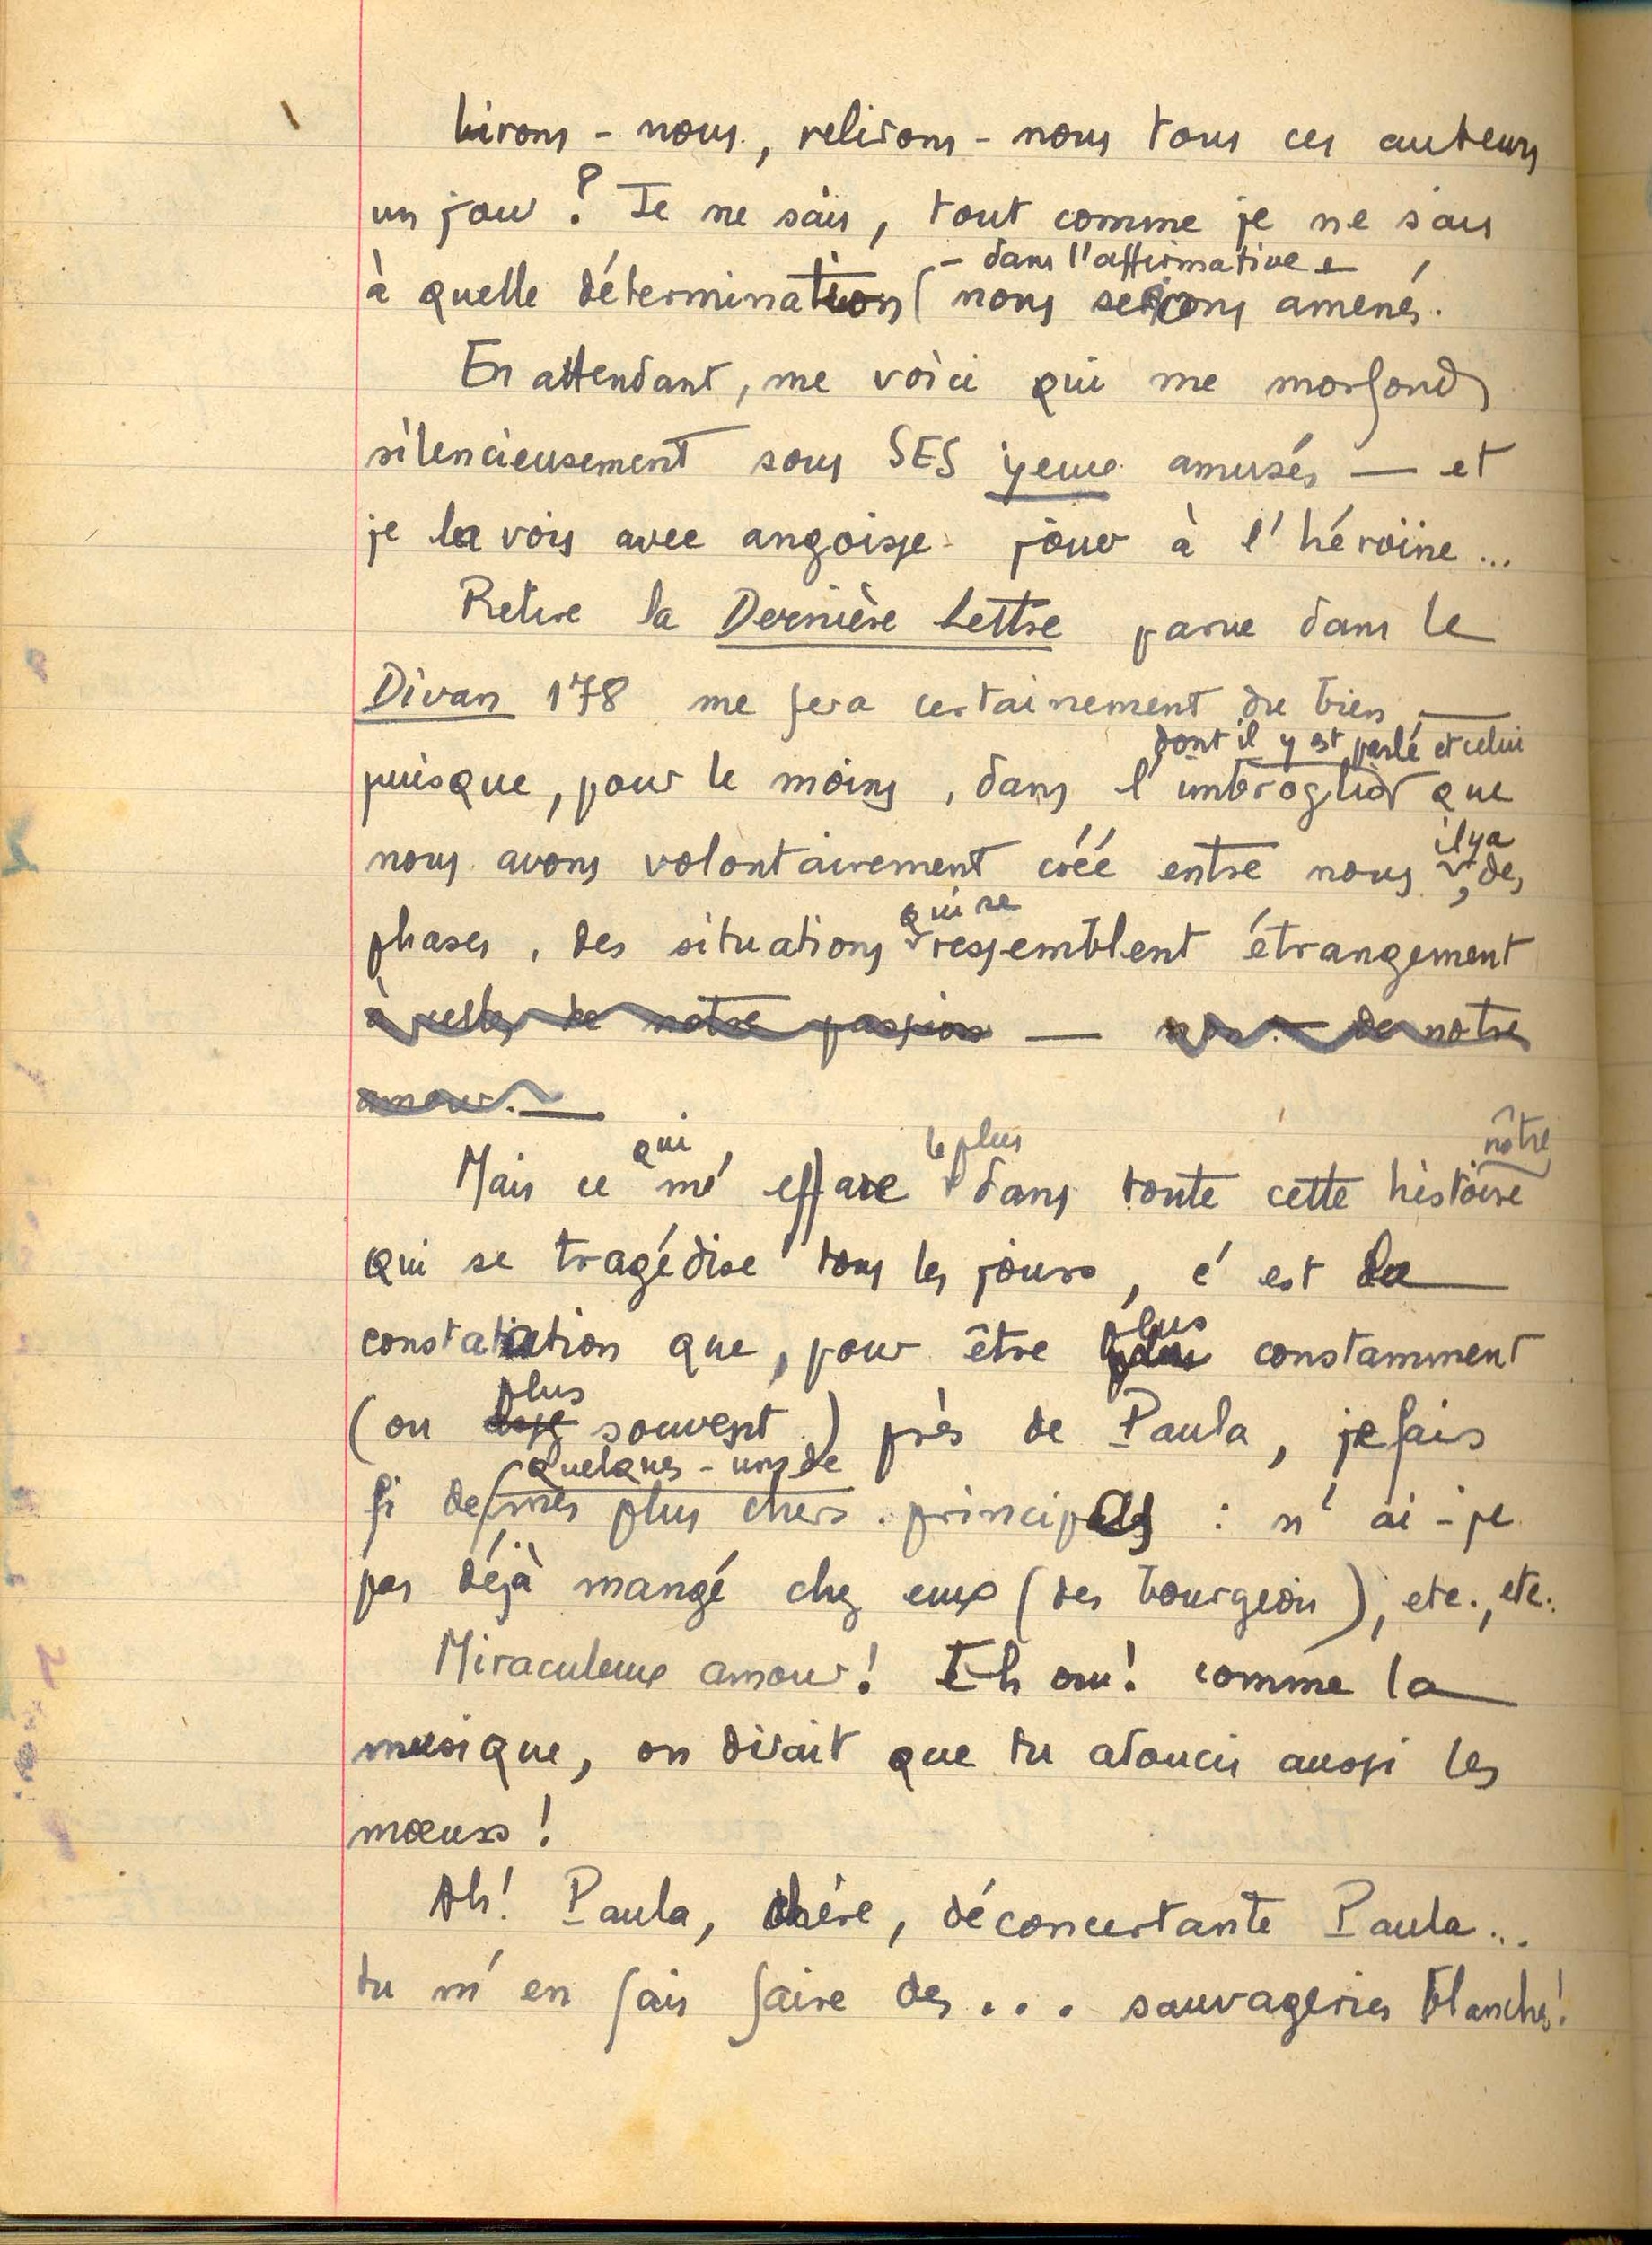 Lirons-nous, relirons-nous tous ces auteurs
un jour ? Je ne sais, tout comme je ne sais
- dans l'affirmative -
à quelle détermination nous serons amenés.
En attendant, me voici qui me morfonds
silencieusement sous SES yeux amusés — et
je la vois avec angoisse jouer à l'héroïne...
Relire la Dernière Lettre parue dans le
Divan 178 me fera certainement du bien —
dont il y est parlé et celui
puisque, pour le moins, dans l'imbroglio que
il y a
nous avons volontairement créé entre nous, des
qui se
phases, des situations ressemblent étrangement
à celles de notre passion — non : de notre
amour. —
qui le plus nôtre
Mais ce m'effare dans toute cette histoire
qui se tragédise tous les jours, c'est la
plus
constatation que, pour être constamment
plus
(ou souvent) près de Paula, je fais
quelques-uns de
fi de mes plus chers principes : n'ai-je
pas déjà mangé chez eux (des bourgeois), etc., etc..
Miraculeux amour ! Eh oui ! comme la
musique, on dirait que tu adoucis aussi les
mœurs !
Ah ! Paula, chère, déconcertante Paula...
tu m'en fais faire des... sauvageries blanches !